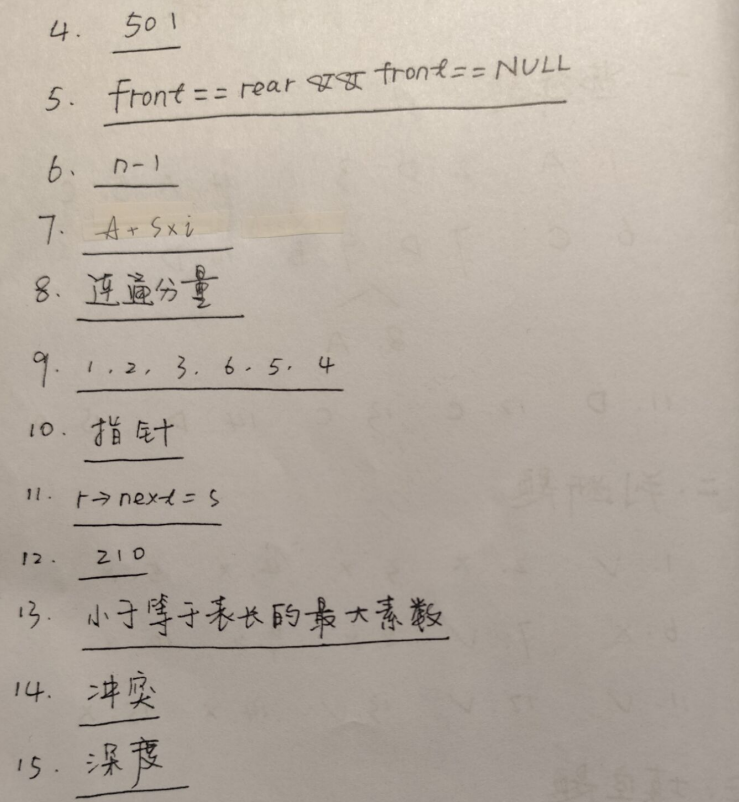 4. 501
5. front == rear && front == NULL
6. n-1
7. A+S×i
8. 连通分量
9. 1. 2. 3. 6. 5. 4
10. 指针
11. r→next = s
12. 210
13. 小于等于表长的最大素数
14. 冲突
15. 深度